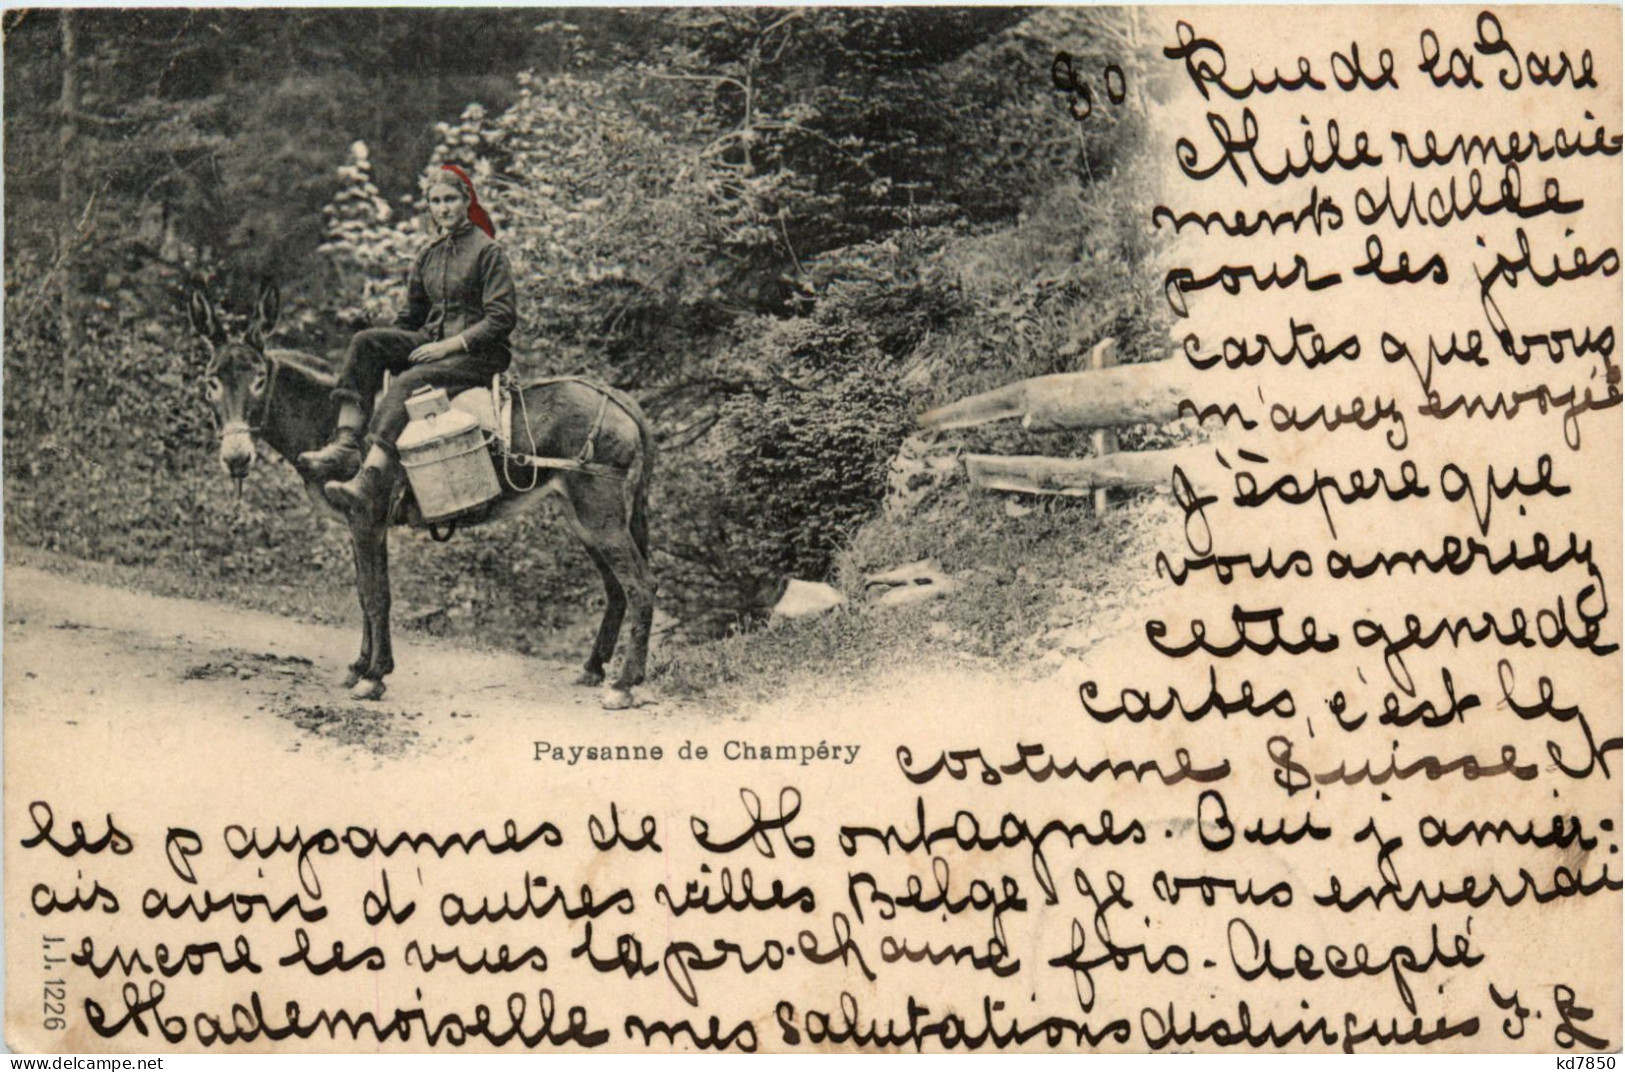 90 Rue de la Gare
Mille remercie-
ments Mdlle
pour les jolies
cartes que vous
m'avez envoyée
j'èspere que
vous ameriez
cette genre de
cartes, c'est le
Paysanne de Champéry
costume Suisse et
les paysannes de Montagnes. Oui j'amier-
ais avoir d'autres villes Belge. Je vous enverrai
encore les vues la prochaine fois. Accepté
Mademoiselle mes Salutations distinguées J. L
J.J. 1226
kd7850